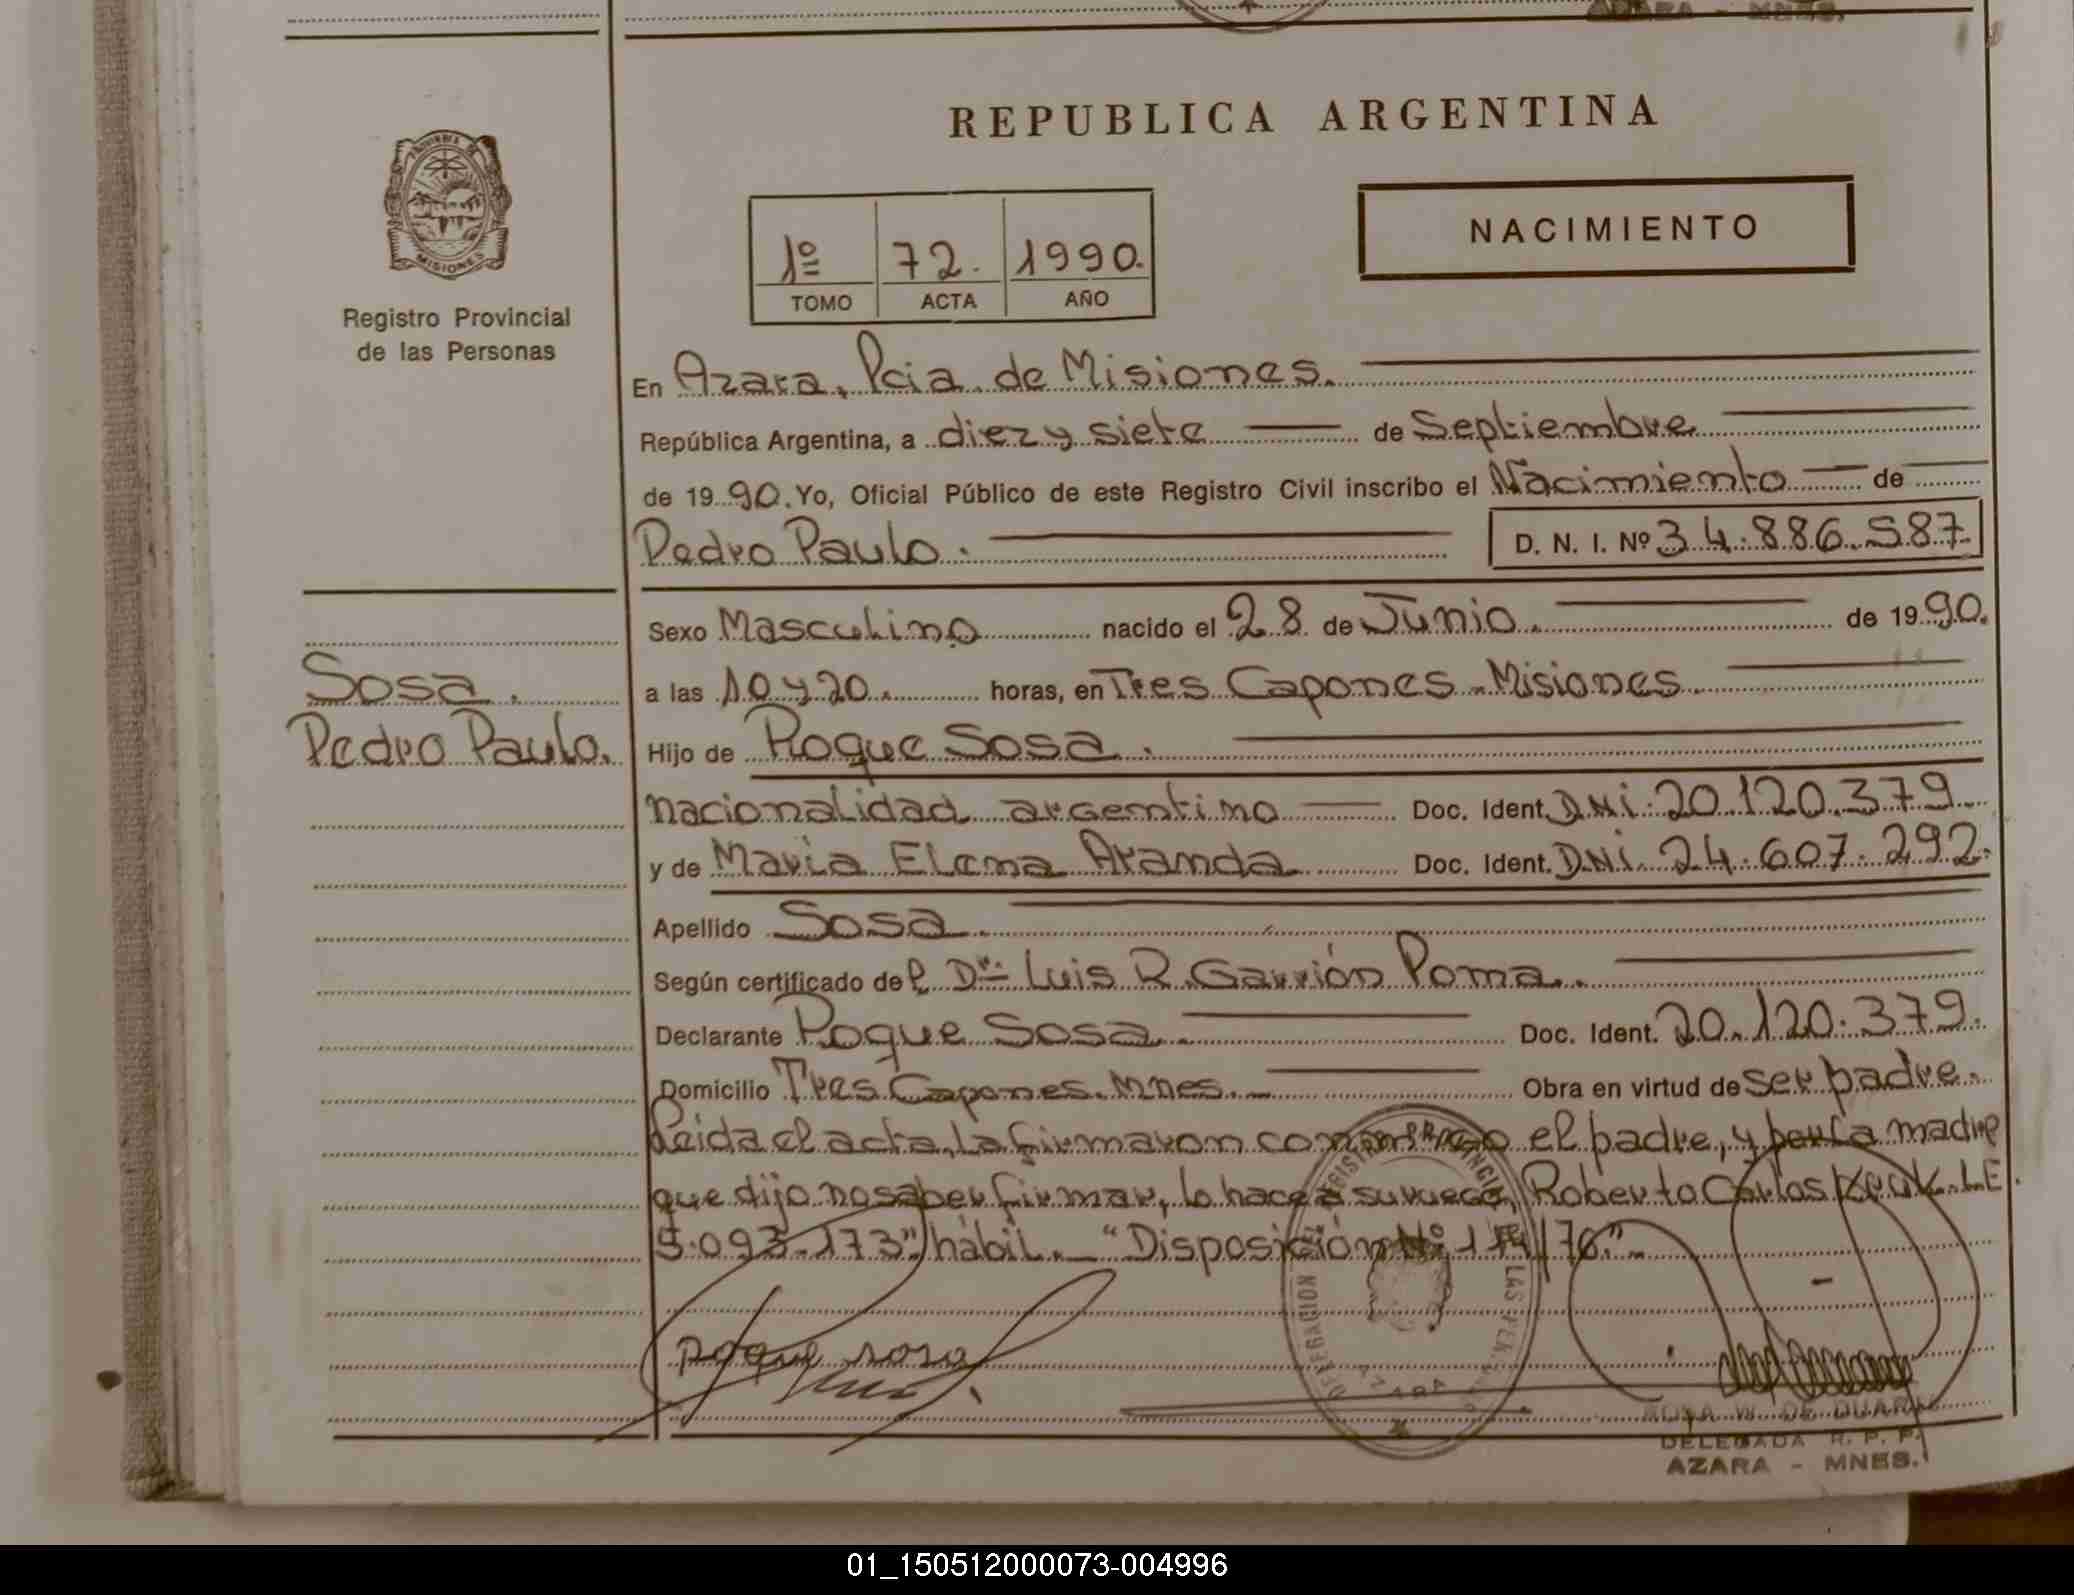 AZARA - MNES.
REPUBLICA ARGENTINA
PROVINCIA DE
MISIONES
Registro Provincial
de las Personas
1º 72. 1990.
TOMO ACTA AÑO
NACIMIENTO
En Azara, Pcia. de Misiones.
República Argentina, a diez y siete de Septiembre
de 1990. Yo, Oficial Público de este Registro Civil inscribo el Nacimiento de
Pedro Paulo. D. N. I. Nº 34.886.587
Sexo Masculino nacido el 28 de Junio. de 1990.
Sosa.
a las 10 y 20. horas, en Tres Capones - Misiones
Pedro Paulo.
Hijo de Roque Sosa.
nacionalidad argentino Doc. Ident. DNI. 20.120.379
y de Maria Elena Aranda Doc. Ident. DNI. 24.607.292.
Apellido Sosa.
Según certificado del Dr. Luis R. Garrión Poma.
Declarante Roque Sosa. Doc. Ident. 20.120.379.
Domicilio Tres Capones. Mnes. Obra en virtud de ser padre.
Leida el acta, la firmaron conmigo el padre, y por la madre
que dijo no saber firmar, lo hace a su ruego, Roberto Carlos LE.
5.093.173" hábil. - "Disposición Nº 114/76"
DELEGACION DEL REGISTRO PROVINCIAL DE LAS PERSONAS
AZARA
roque sosa
ROSA W. DE DUARTE
DELEGADA R. P. P.
AZARA - MNES.
01_150512000073-004996